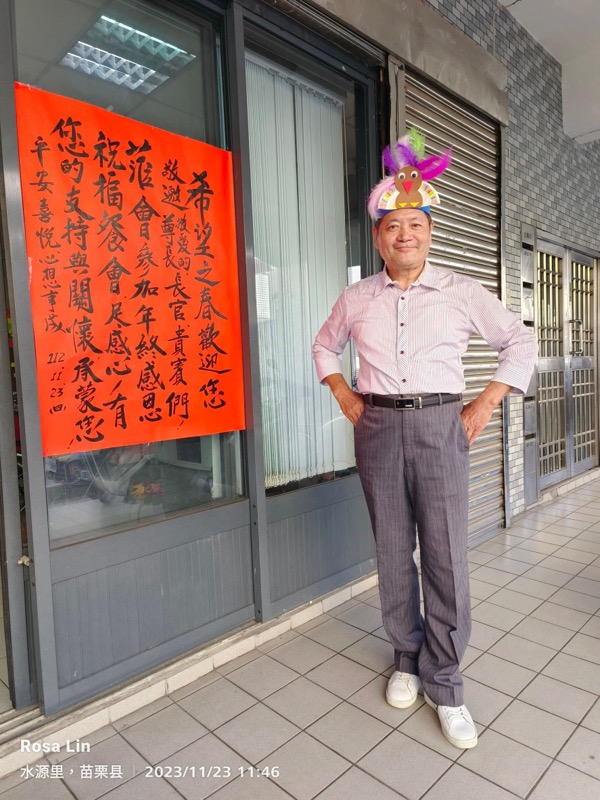 希望之春歡迎您
敬愛的長官、貴賓們!
敬邀尊長
蒞會參加年終感恩
祝福餐會足感心!有
您的支持與關懷承蒙您!
平安喜悅心想事成 112.11.23.四
Rosa Lin
水源里，苗栗县 | 2023/11/23 11:46